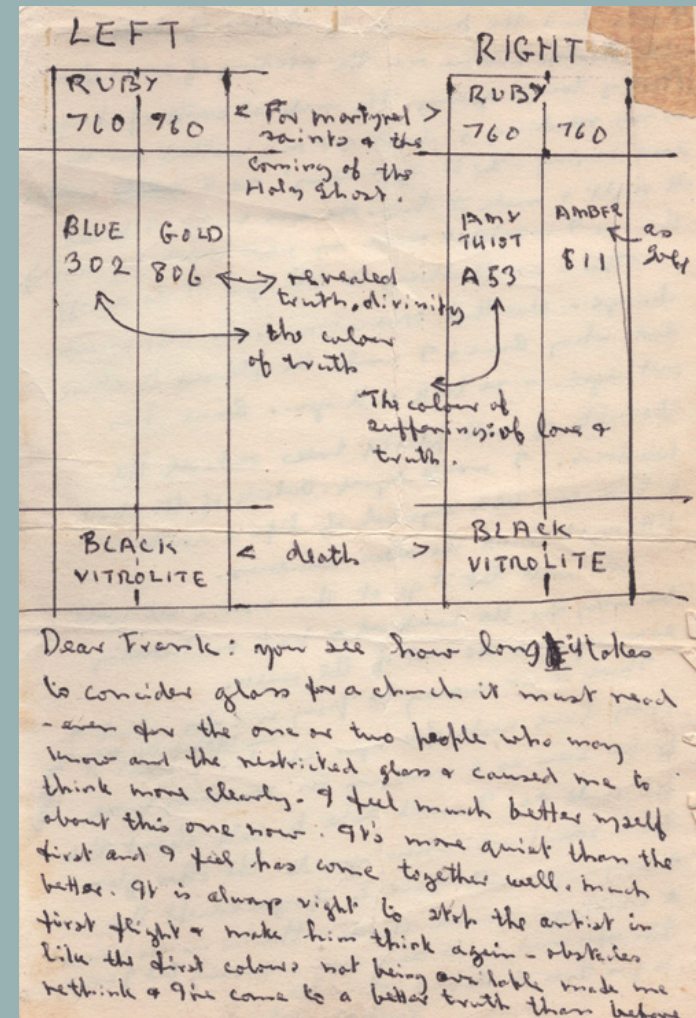 LEFT
RIGHT
RUBY
760 960
< For martyred >
saints & the
coming of the
Holy Ghost.
RUBY
760 760
BLUE
302
GOLD
806
revealed
truth, divinity
the colour
of truth
AMY
THIST
A 53
AMBER
811
as
The colour of
suffering: of love &
truth.
BLACK
VITROLITE
< death >
BLACK
VITROLITE
Dear Frank: you see how long it takes
to concider glass for a church it must read
- even for the one or two people who may
know and the restricted glass & caused me to
think more clearly. I feel much better myself
about this one now. It's more quiet than the
first and I feel has come together well. much
better. It is always right to stop the artist in
first flight & make him think again - obstacles
like the first colours not being available made me
rethink & I've come to a better truth than before